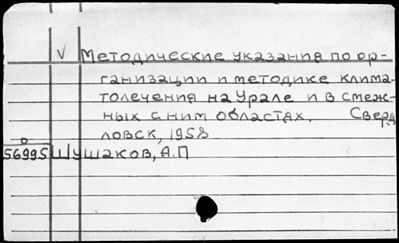 V Методические указания по ор-
ганизации и методике клима-
толечения на Урале и в смеж-
ных с ним областях. Сверд
ловск, 1958
56995 Шушаков, А.П